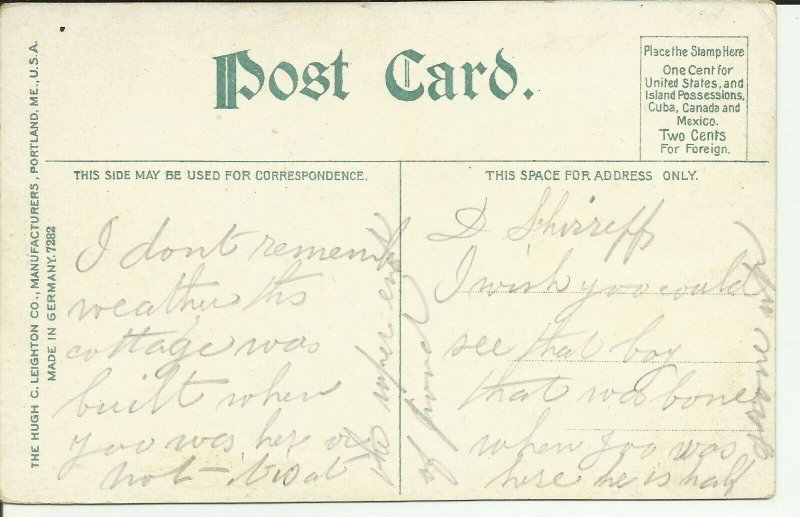 Post Card.
Place the Stamp Here
One Cent for
United States, and
Island Possessions,
Cuba, Canada and
Mexico.
Two Cents
For Foreign.
THE HUGH C. LEIGHTON CO., MANUFACTURERS, PORTLAND, ME., U.S.A.
MADE IN GERMANY. 7282
THIS SIDE MAY BE USED FOR CORRESPONDENCE.
I dont rememb
weather this
cottage was
built when
yoo was her or
not - it is at
THIS SPACE FOR ADDRESS ONLY.
D Shirreffs
I wish yoo could
see that boy
that was bone
when yoo was
here he is half